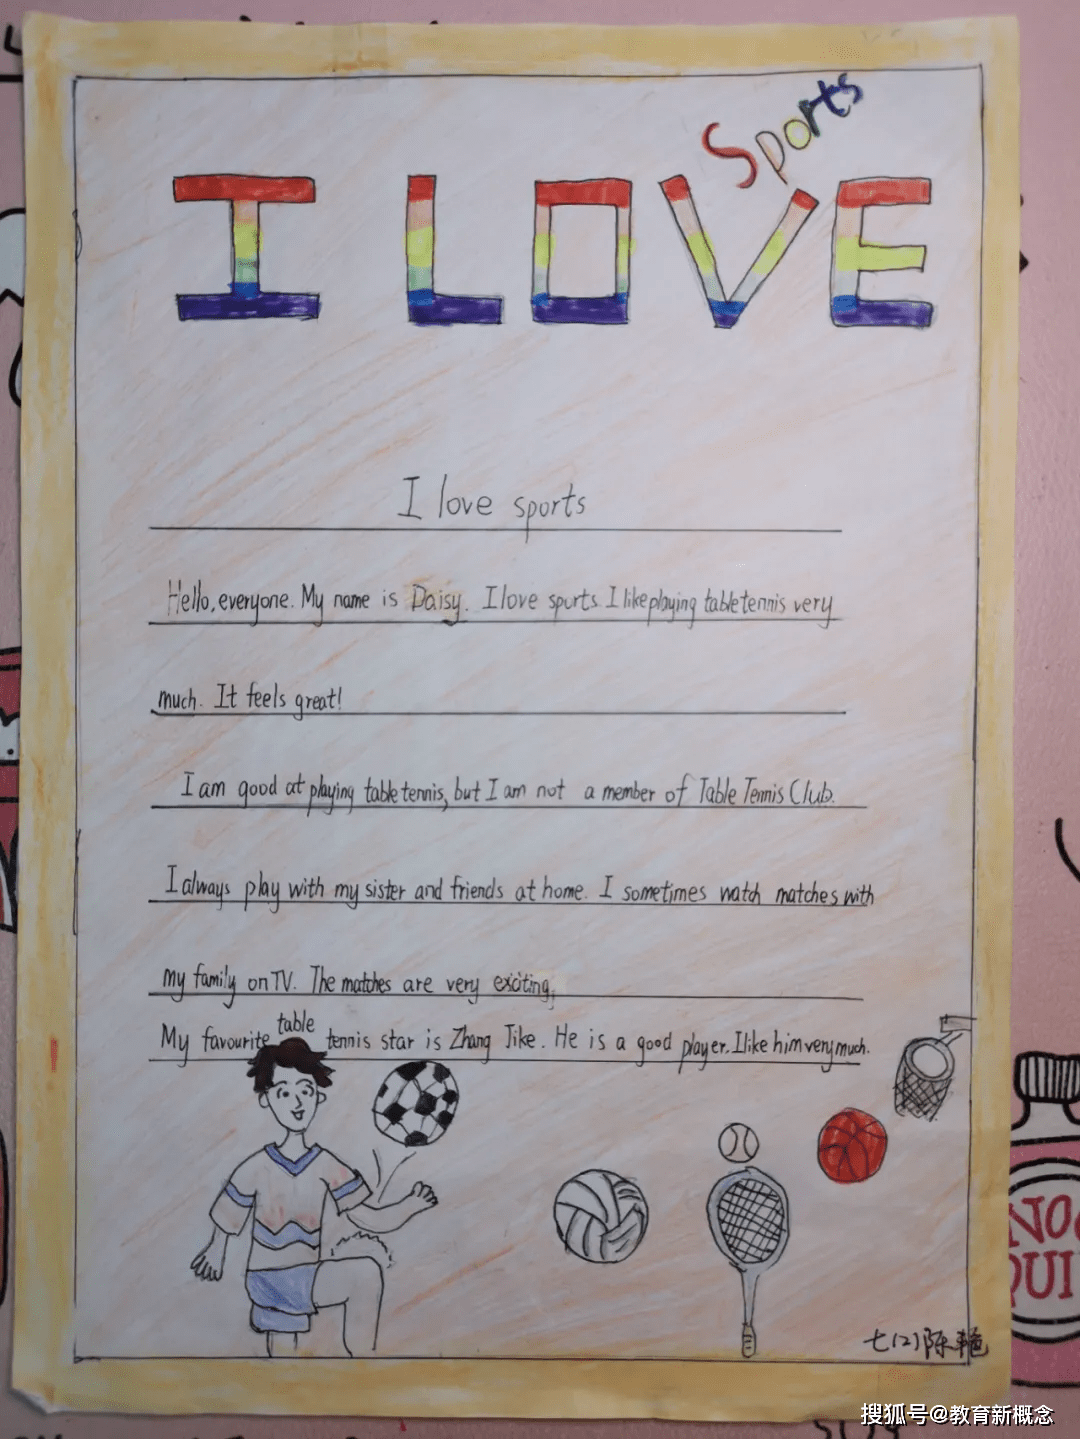 Sports
I LOVE
I love sports
Hello, everyone. My name is Daisy. I love sports. I like playing table tennis very
much. It feels great!
I am good at playing table tennis, but I am not a member of Table Tennis Club.
I always play with my sister and friends at home. I sometimes watch matches with
my family on TV. The matches are very exciting.
My favourite table tennis star is Zhang Jike. He is a good player. I like him very much.
七(2)陈艳
NO
QUI
搜狐号@教育新概念